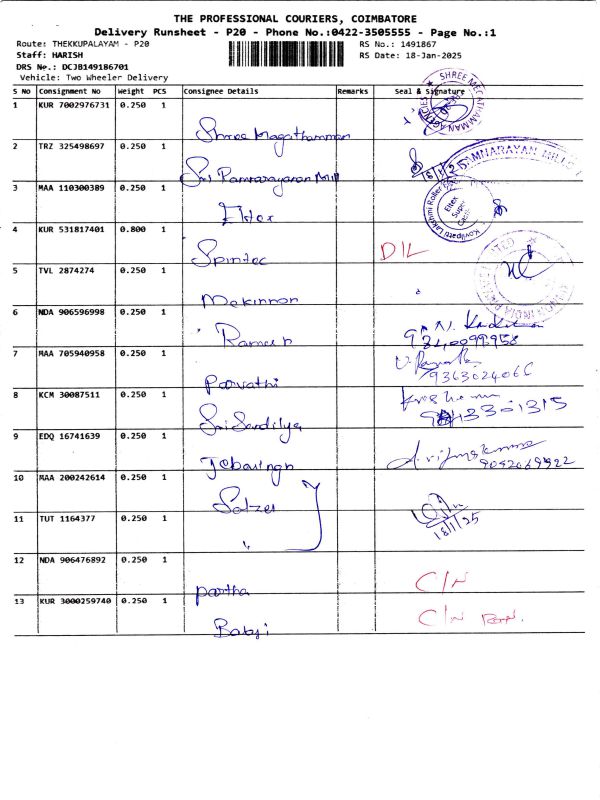 THE PROFESSIONAL COURIERS, COIMBATORE
Delivery Runsheet - P20 - Phone No.:0422-3505555 - Page No.:1
Route: THEKKUPALAYAM - P20 RS No.: 1491867
Staff: HARISH RS Date: 18-Jan-2025
DRS No.: DCJB149186701
Vehicle: Two Wheeler Delivery
S No Consignment No Weight PCS Consignee Details Remarks Seal & Signature
1 KUR 7002976731 0.250 1 Shree Magathamman
2 TRZ 325498697 0.250 1 Sri Ramnarayanan Mill
3 MAA 110300389 0.250 1 Eltex
4 KUR 531817401 0.800 1 Spintec D/L
5 TVL 2874274 0.250 1 Mekinnon
6 NDA 906596998 0.250 1 Ramesh
7 MAA 705940958 0.250 1 Parvathi 9363024066
8 KCM 30087511 0.250 1 Sri Sandilya
9 EDQ 16741639 0.250 1 Jebasingh 9092069922
10 MAA 200242614 0.250 1 Salzer
11 TUT 1164377 0.250 1 " 18/1/25
12 NDA 906476892 0.250 1 partha C/N
13 KUR 3000259740 0.250 1 Babji C/N